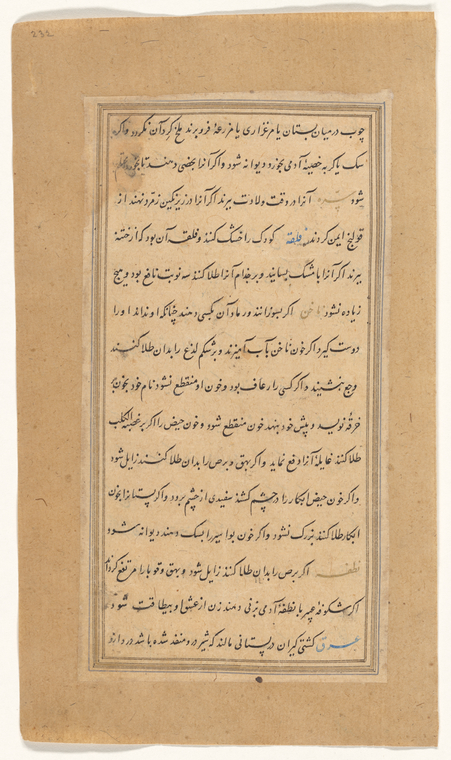 232
چوب در میان بستان یا مرغزاری یا مزرعهٔ فرو برند ملخ گرد آن نگردد و اگر
سک یا گربه خصیهٔ آدمی بخورد دیوانه شود و اگر آنرا بعضی دهند تا بخورد
شود آنرا در وقت ولادت ببرند اگر آنرا در زیر نگین زمرد نهند از
قولنج ایمن گردند قلفهٔ کودک را خشک کنند و قلفه آن بود که از ختنه
ببرند اگر آنرا با مشک بسایند و بر جذام آنرا طلا کنند سه نوبت نافع بود و هیچ
زیاده نشود ناخن اگر بسوزانند و رماد آن بکسی دهند چنانکه او نداند او را
دوست گیرد اگر خون ناخن بآب آمیزند و بر شکم لذع را بدان طلا کنند
وجع بنشیند و اگر کسی را رعاف بود و خون او منقطع نشود نام خود بخون بر
خرقه نویسد و پیش خود بنهد خون منقطع شود و خون حیض را اگر بر عضة الکلب
طلا کنند غایلهٔ آنرا دفع نماید و اگر بهق و برص را بدان طلا کنند زایل شود
و اگر خون حیض ابکار را در چشم کشند سفیدی از چشم برود و اگر پستانرا بخون
ابکار طلا کنند بزرک نشود و اگر خون بواسیر را بسک دهند دیوانه شود
نطفه اگر برص را بدان طلا کنند زایل شود و بهق و قوبا را مرتفع گرداند
اگر شکوفه با نطفهٔ آدمی بزنی دهند زن از عشق او بیطاقت شود
عرق کشتی گیران در پستانی مالند که شیر در و منعقد شده باشد در دارو